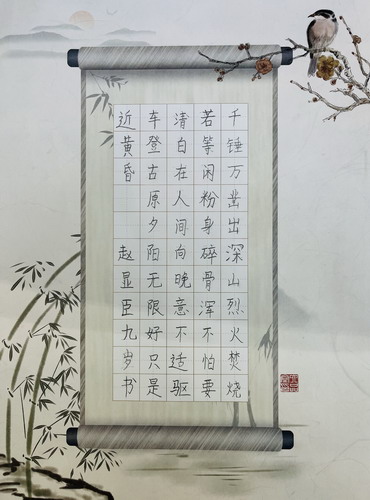 千锤万凿出深山烈火焚烧
若等闲粉身碎骨浑不怕要
清白在人间向晚意不适驱
车登古原夕阳无限好只是
近黄昏 赵显臣九岁书